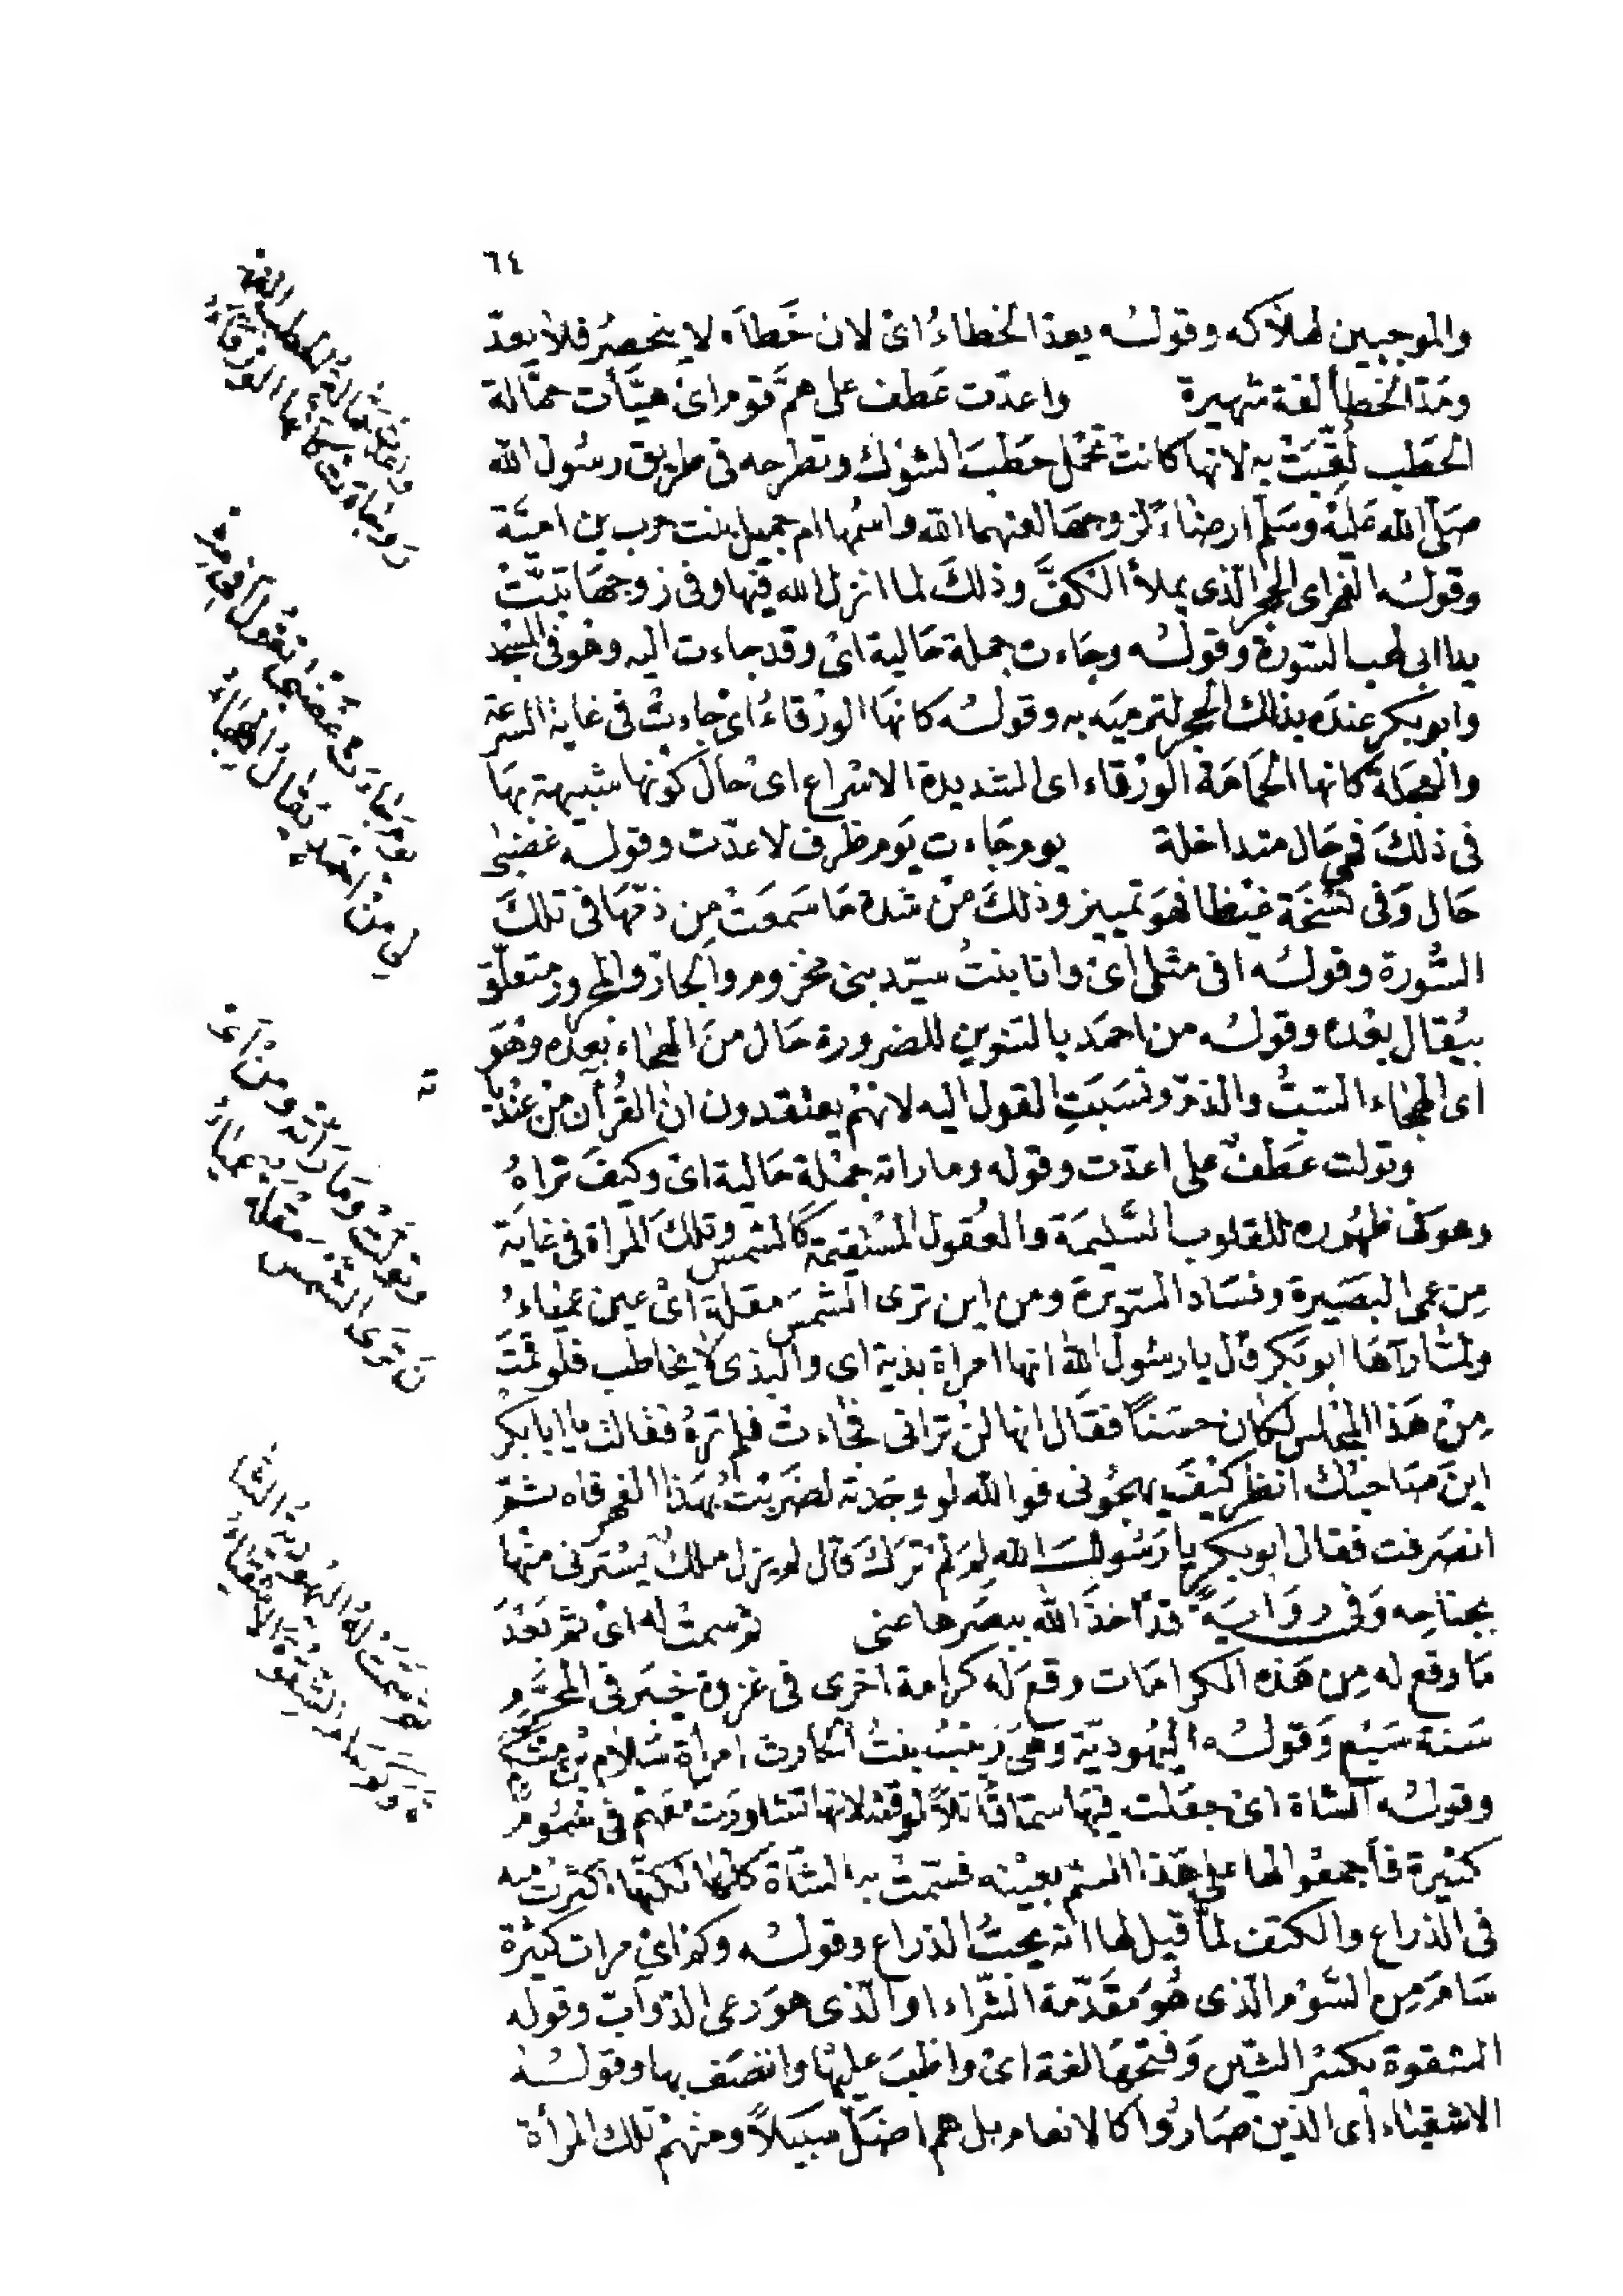 ٦٤
والموجبين لهلاكه وقوله يعد الخطاءُ اى لان خَطاَه لا ينحصرُ فلا يعدّ
ومَدّ الخطأ لغة شهيرة واعدّت عَطف على همَّ قوم اىْ هيَّأت حمّالة
الحَطَب لُقّبَتْ به لانها كانتْ تحْمل حَطَبَ الشوْك وتطرحه فى طريق رسُول الله
صَلّى الله عَليْه وسَلّم ارضاءً لزوجهَا لعنهما الله واسْمها ام جميل بنت حرب بن اميَّة
وقولهُ الفهر اى الحجر الذى يملأ الكفَّ وذلكَ لما انزل الله فيها وفى زوجهَا تبتْ
يدا ابى لهب السّورة وقولهُ وجَاءت جملة حَالية اىْ وقد جاءت اليه وهُو فى المسْجد
وابو بكر عندَه بذلك الحجر لترميَه به وقولهُ كانهَا الورْقاءُ اىْ جاءتْ فى غاية السرعَة
والعجلة كانها الحمَامَة الورْقاء اى الشديدة الاسْراع اىْ حال كوْنها شبيهة بهَا
فى ذلكَ فهى حَال متداخلة يوم جَاءت يَوم ظرف لاعدّت وقوله غضبىْ
حَال وَفى نسْخَة غيْظا فهوَ تمييز وذلكَ منْ شدة مَا سَمعَتْ مِن ذمّهَا فى تلكَ
السُّورة وقولهُ افى مثلى اىْ وانا بنتُ سيّد بنى مخزوم والجارّ والمجرور متعلّق
بيُقال بعْده وقولهُ من احمَد بالتنوين للضرورة حَال منَ الهجاء بعده وهُو
اى الهجَاء السَبُّ والذمّ ونسَبَتِ القول اليه لانهمْ يعتقدون انّ القرُآن مِنْ عنْده
وتولت عَطفٌ على اعدّت وقوله وما راته جمْلة حَالية اىْ وكيفَ تراهُ
وهو فى ظهُوره للقلوب السَّليمَة والعُقول المسْتقيمة كالشمس وتلكَ المراة فى غايَة
مِن عمى البَصَيرة وفسَاد السّريرة ومن اين ترى الشمسَ مقلة اىْ عين عمْياءُ
ولمّا رآهَا ابو بَكر قال يا رسُول اللهِ انها امراة بذية اى والبذى لا يخاطب فلو قمْتَ
مِنْ هَذا المجْلس لكَان حسَناً فقَال انها لنْ ترانى فجَاءتْ فلم ترَهُ فقالت يا ابا بكر
اينَ صَاحبُك انظر كيْفَ يهجُونى فوالله لو وجَدته لضرَبْتُ بهَذا الفهر فاه ثمّ
انصَرفت فقال ابو بكر يا رَسُول الله لِمَ لَمْ ترَكَ قال لم يزل ملكُ يسْترنى منْها
بجناحِه وَفى روَايَة قد اخذَ الله ببصَرها عنى ثم سمتْ له اىْ ثمّ بَعْدَ
مَا وقع له مِن هَذه الكرامَات وقعَ له كرامة اخرى فى غزوة خيبَر فى المحرّم
سَنة سَبْع وَقولهُ اليهُوديّة وَهىَ زينبُ بنتُ الحَارث امرأة سَلام بْن مِشْكم
وقولهُ الشاة اىْ جعَلت فيهَا سمّا قاتلاً لوقته لانها تشاورَت معَهمْ فى سُمُوم
كثيرة فأجمعُوا لها على هَذا السّم بعيْنه فسَمّتْ به الشَاة كلّها لكنّها اكثرتْ منه
فى الذراع والكتف لمّا قيل لها انه يحبُّ الذراع وقولهُ وكم اىْ مرات كثيْرة
سَامَ مِن السّوْم الّذى هُو مقَدّمة الشّراء او الّذى هوَ رعى الدّوابّ وقوله
الشقوة بكسْر الشّين وَفتحهَا لغة اىْ واظبَ عليْها واتصَف بها وقولهُ
الاشقيَاء اى الذين صَارُوا كالانعام بل هم اضَلّ سَبيْلاً ومنهمْ تلك المرأة
وَاعدّت حمّالة الحطب الفهْر
وجَاءت كانها الورقاءُ
يوم جَاءت غضبىْ تقول افى مثـ
لى منْ احمد يقال الهجاءُ
وتولّتْ ومَا رأته ومنْ ايْـ
نَ ترَى الشمس مقلة عمياءُ
ثم سمّتْ له اليهُوديّة الشا
ة وكم سَام الشقوة الاشقيَاءُ